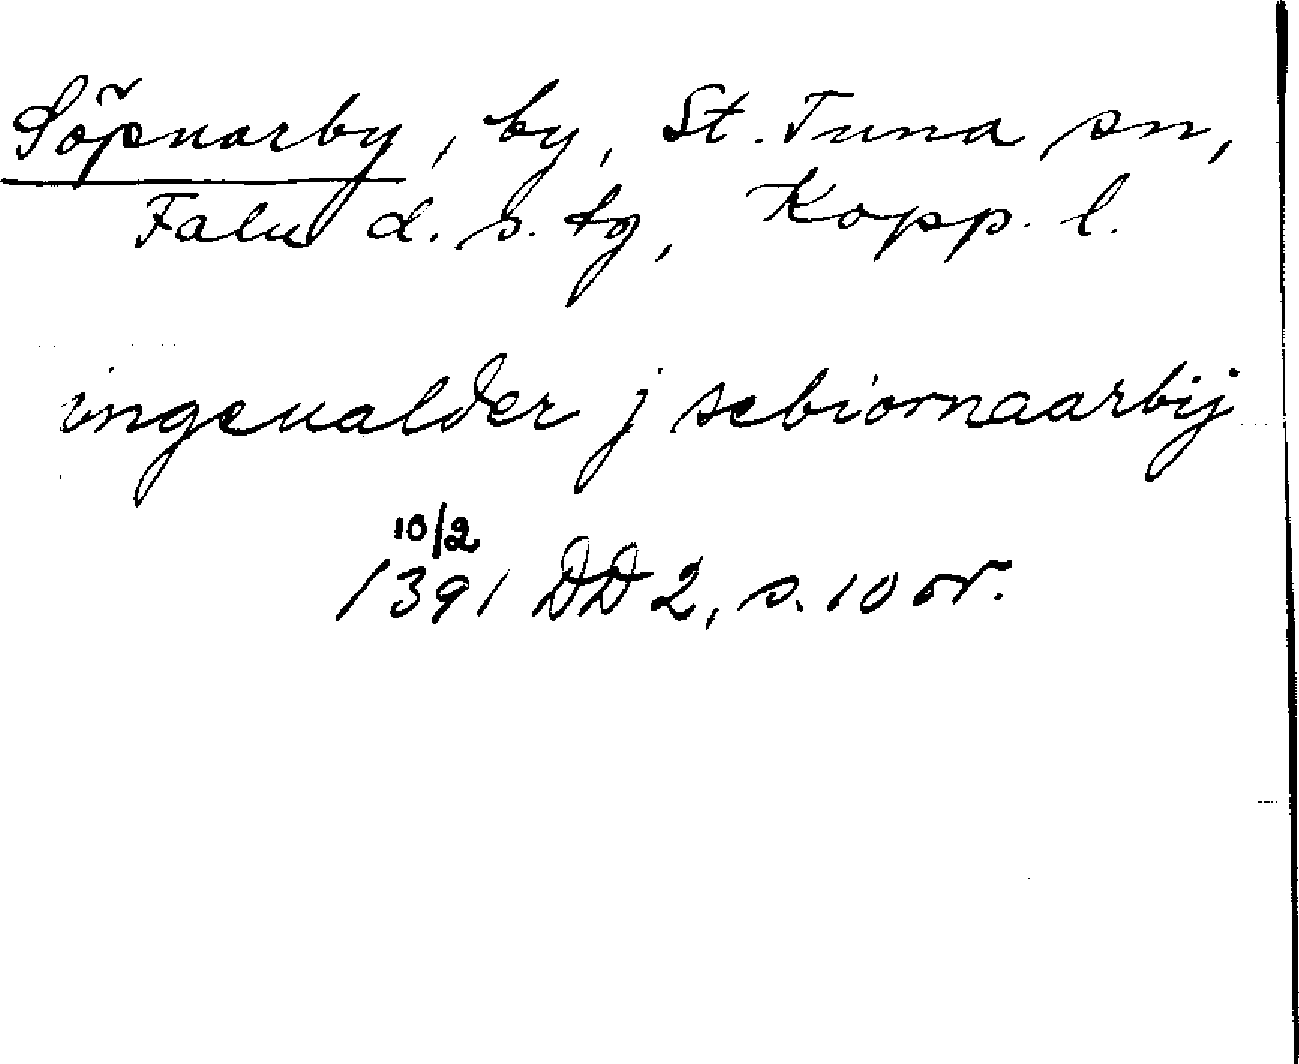 Söpnarby, by, St. Tuna sn,
Falu d. s. tg, Kopp. l.
ingeualder j sebiornaarbij
10/2
1391 DD 2, s. 10 or.